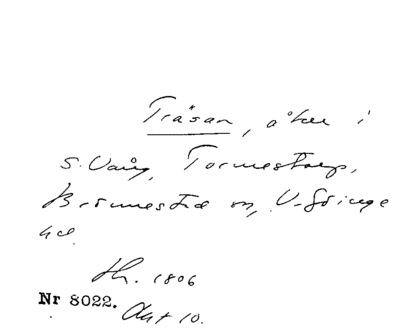 Träsan, åker i
S. Vång, Tormestorp,
Brönnestad sn, V. Göinge
hd.
Sk. 1806
Nr 8022. Akt 10.